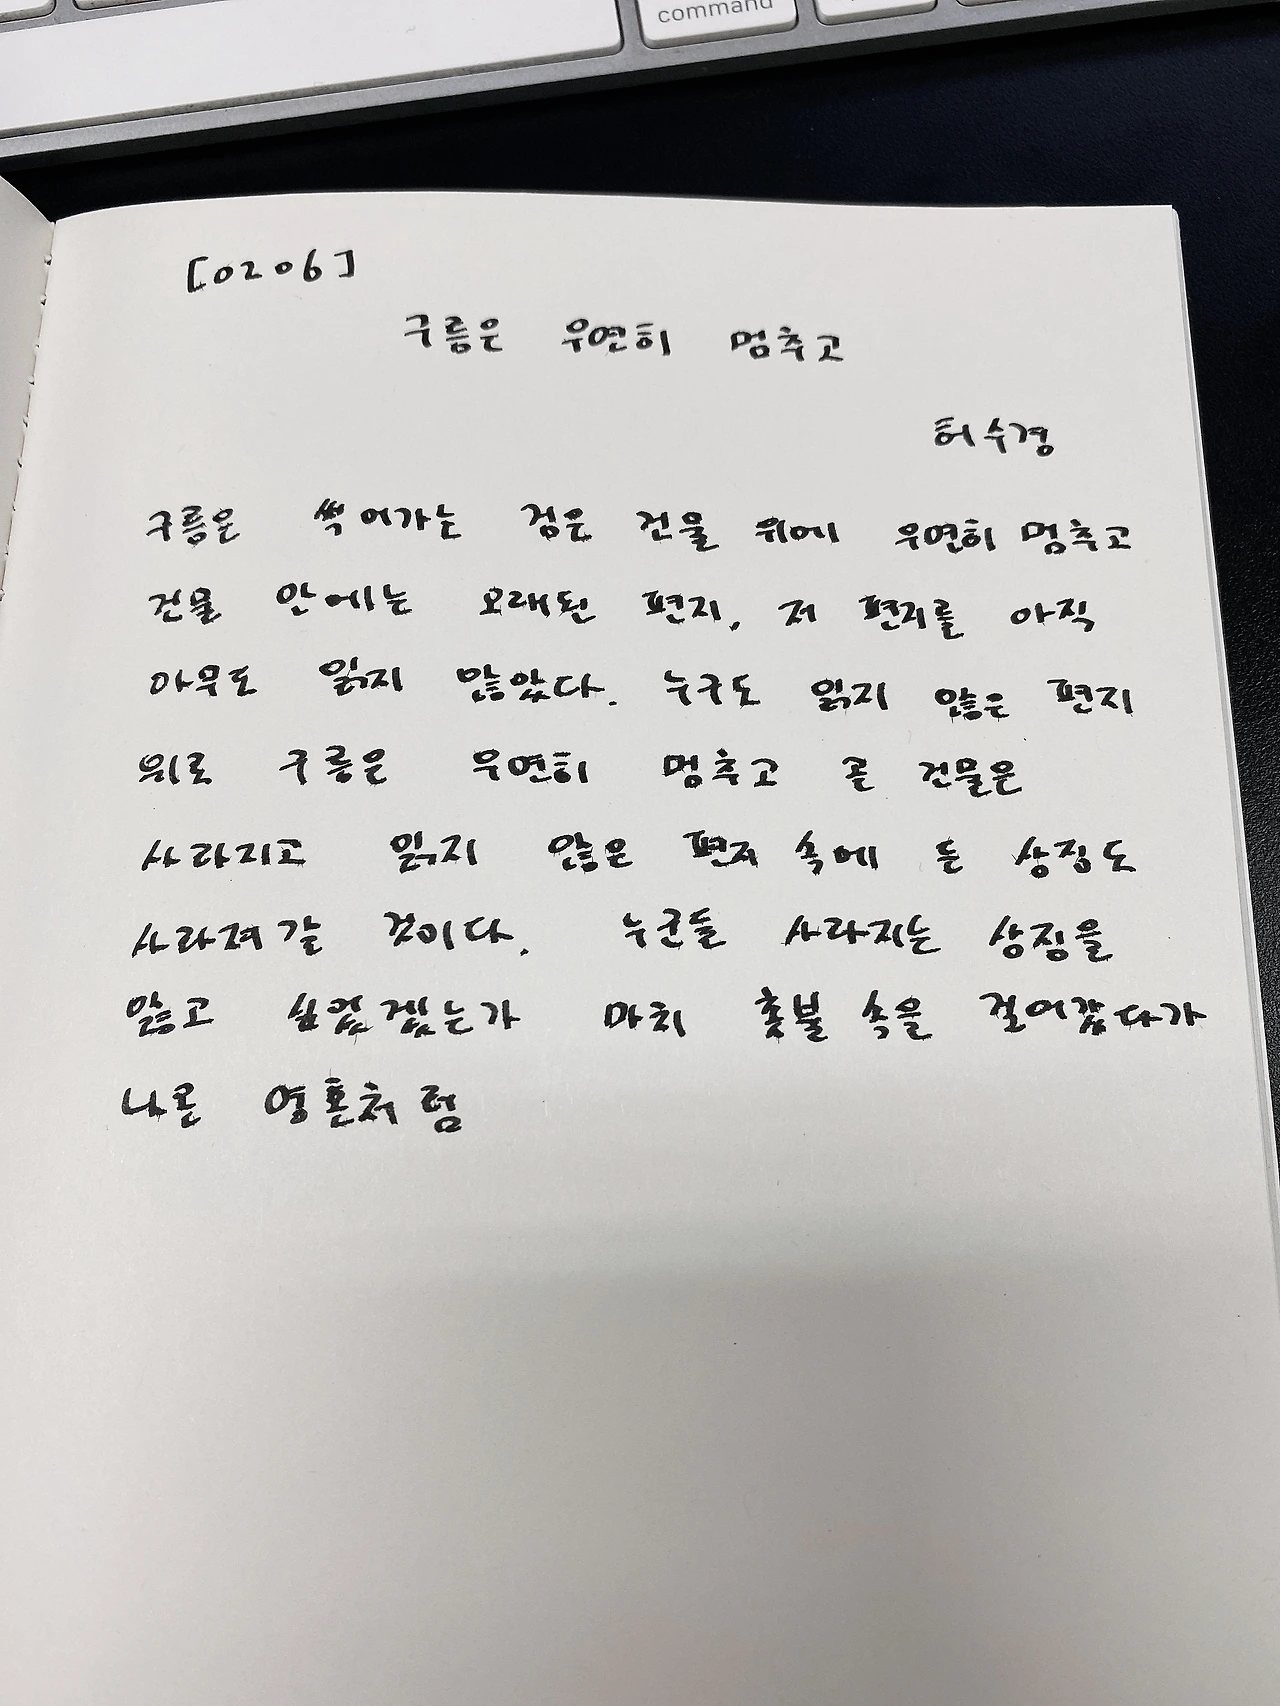 command
[0206]
구름은 우연히 멈추고
허수경
구름은 썩어가는 검은 건물 위에 우연히 멈추고
건물 안에는 오래된 편지, 저 편지를 아직
아무도 읽지 않았다. 누구도 읽지 않은 편지
위로 구름은 우연히 멈추고 곧 건물은
사라지고 읽지 않은 편지 속에 든 상징도
사라져갈 것이다. 누군들 사라지는 상징을
앓고 싶었겠는가 마치 촛불 속을 걸어갔다가
나온 영혼처럼